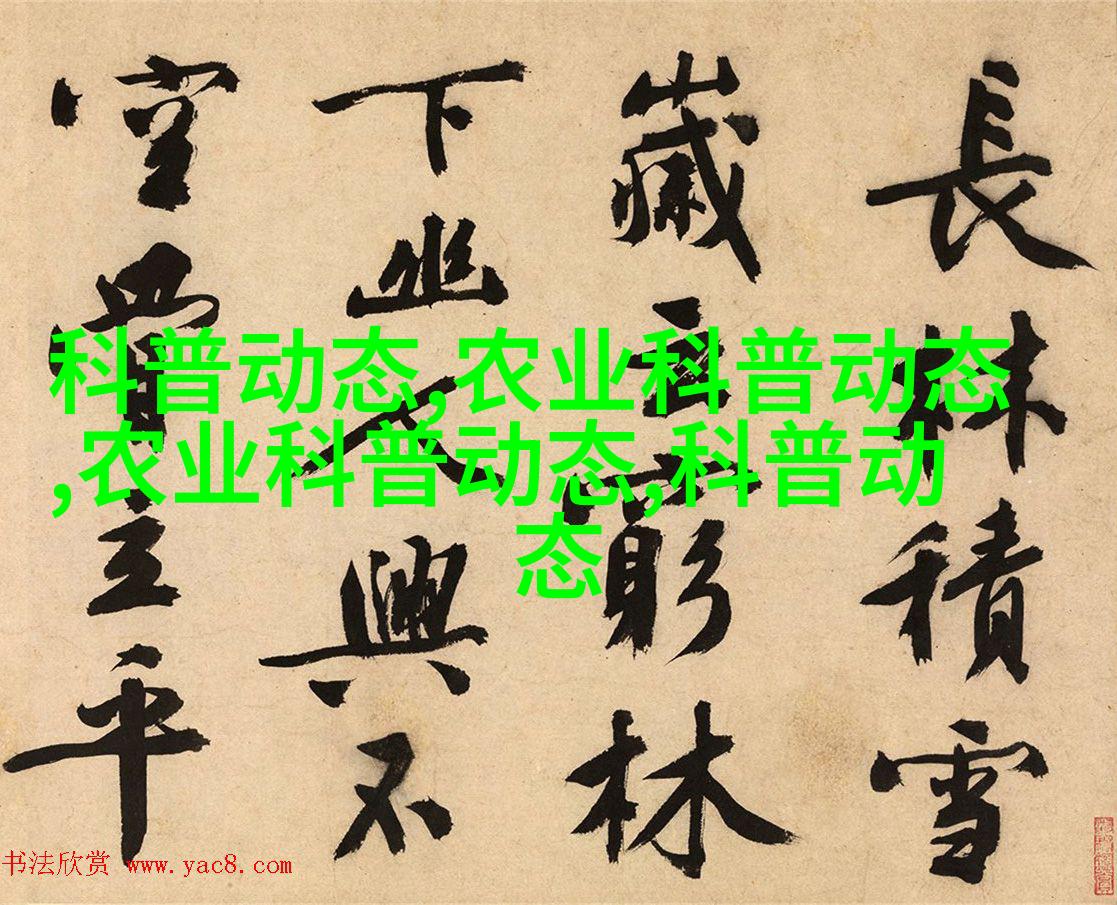 科普动态,农业科普动态
,农业科普动态,科普动
态
長林積雪
歲云窮林
下幽人興不
空立平
书法欣赏 www.yac8.com